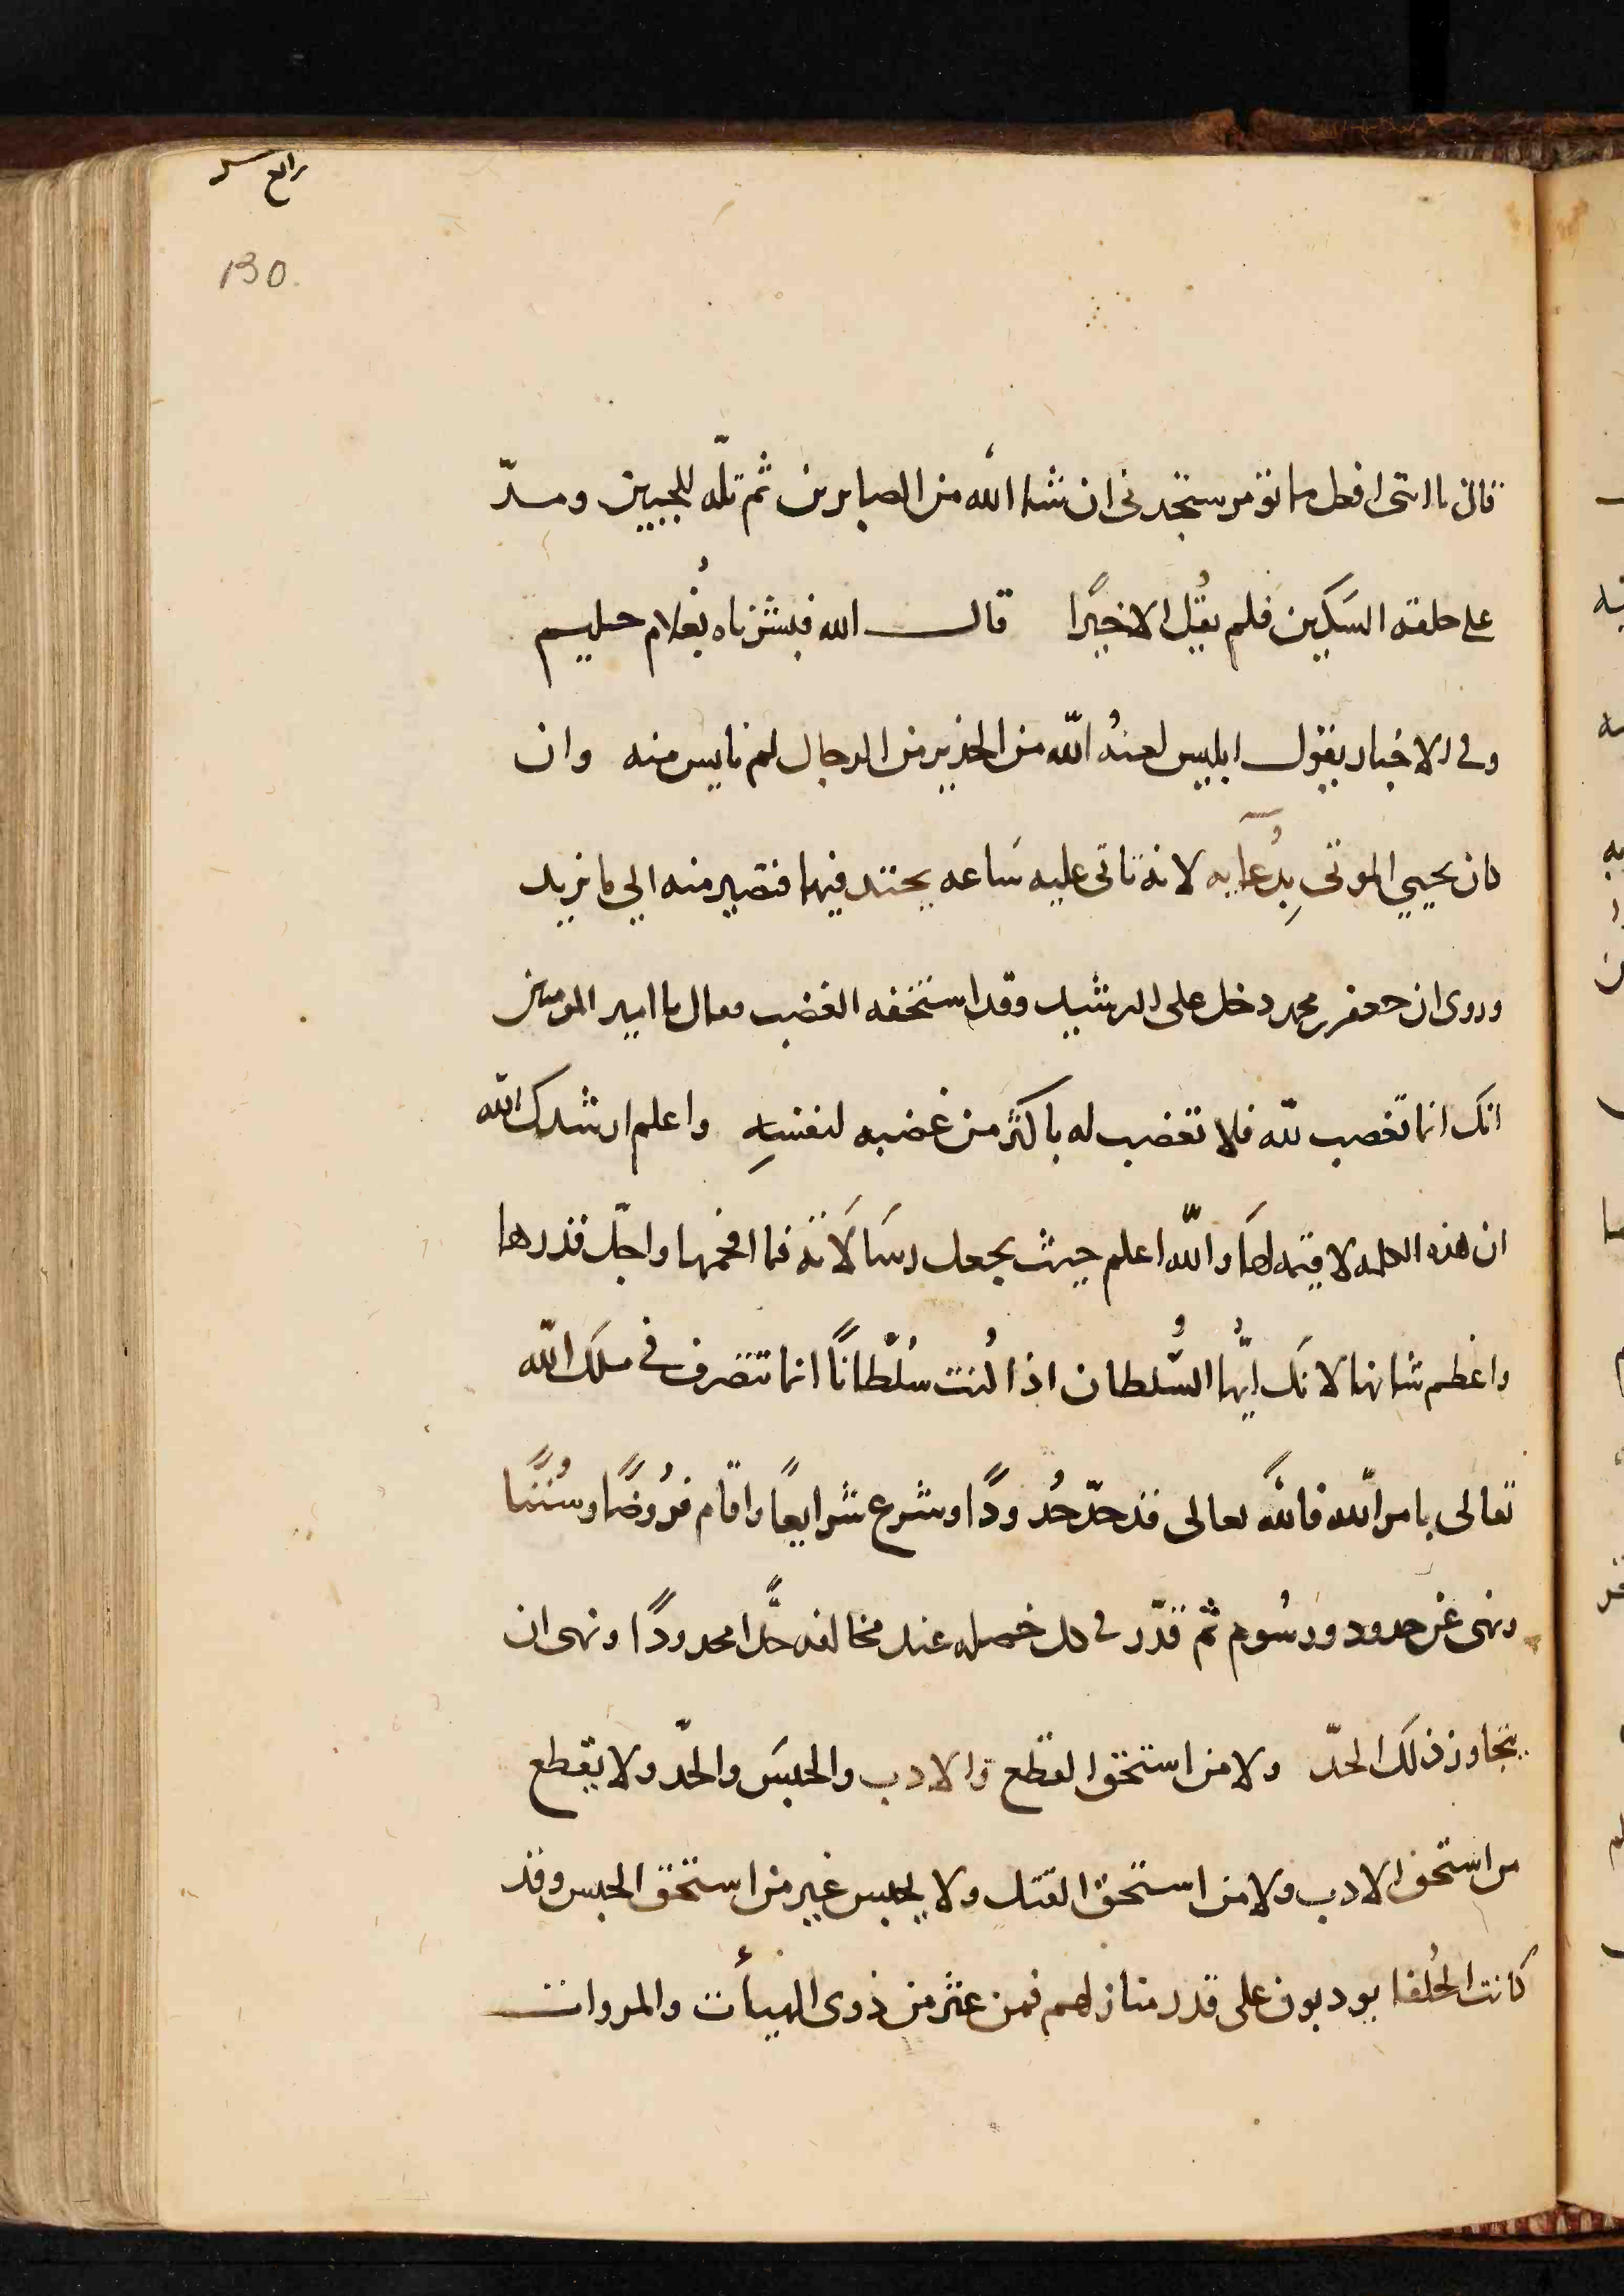 رابع
130.
قال يا ابتى افعل ما تومر ستجدنى ان شا الله من الصابرين ثم تلّه للجبين ومدّ
على حلقه السَكين فلم يقُل الا خيرًا قال الله فبشرناه بغُلام حليم
وفى الاخبار يقول ابليس لعنهُ اللّه من الحديد من الرجال لم نايس منه وان
كان يحيي الموتى بِدُعآيه لانه تاتى عليه سَاعه يحتد فيها فنصير منه الي ما نريد
وروى ان جعفر بن محمد دخل على الرشيد وقد استخفه الغضب فقال يا امير المومنين
انك انما تغضب للّه فلا تغضب له باكثر من غضبه لنفسِه واعلم ارشدك اللّه
ان هذه الكلمه لا قيمه لهَا واللّه اعلم حيث يجعل رسَالَاته فما افخمها واجلّ قدرها
واعظم شانها لانَك ايُّها السُّلطان اذا كُنت سُلْطانًا انما تتصرف فى ملكَ اللّه
تعالى بامر اللّه فانه تعالى قد حدّ حُدودًا وشرع شرايعًا واقام فرُوضًا وسُننًا
ونهى عن حدود ورسُوم ثم قدّر فى كل خصله عند مخالفه حدًّا محدودًا ونهى ان
يتجاوز ذلَك الحدّ ولا من استحق القطع والادب والحبسَ والحدّ ولا يقطع
من استحق الادب ولا من استحق القتل ولا يحبس غير من استحق الحبس وقد
كانت الخُلفا يودبون على قدر منازلهم فمن عثر من ذوى الهيأت والمروات